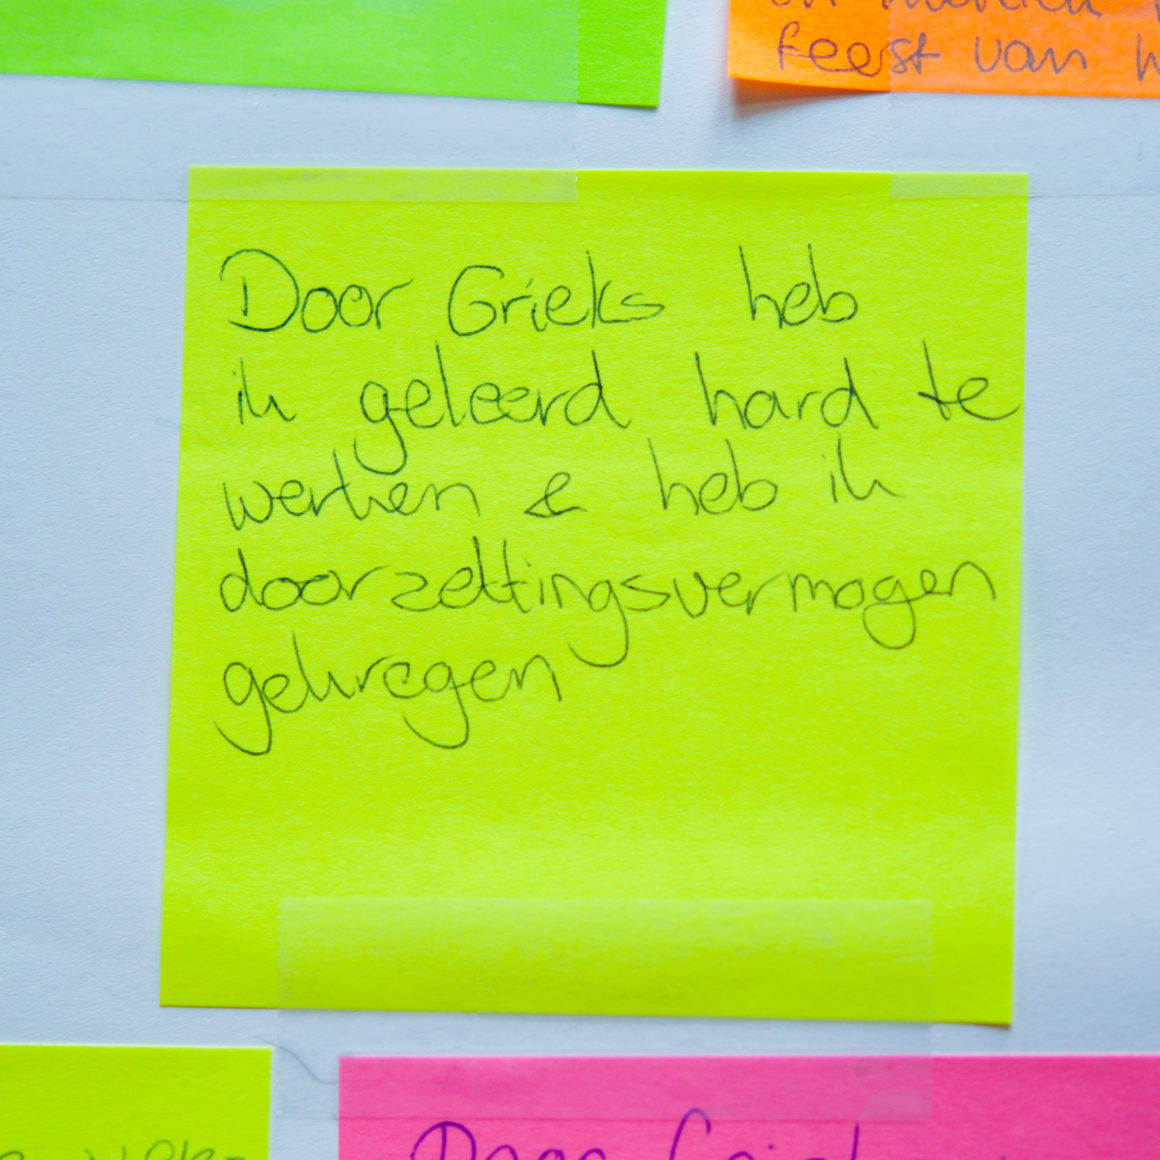 feest van
Door Grieks heb
ik geleerd hard te
werken & heb ik
doorzettingsvermogen
gekregen
Door